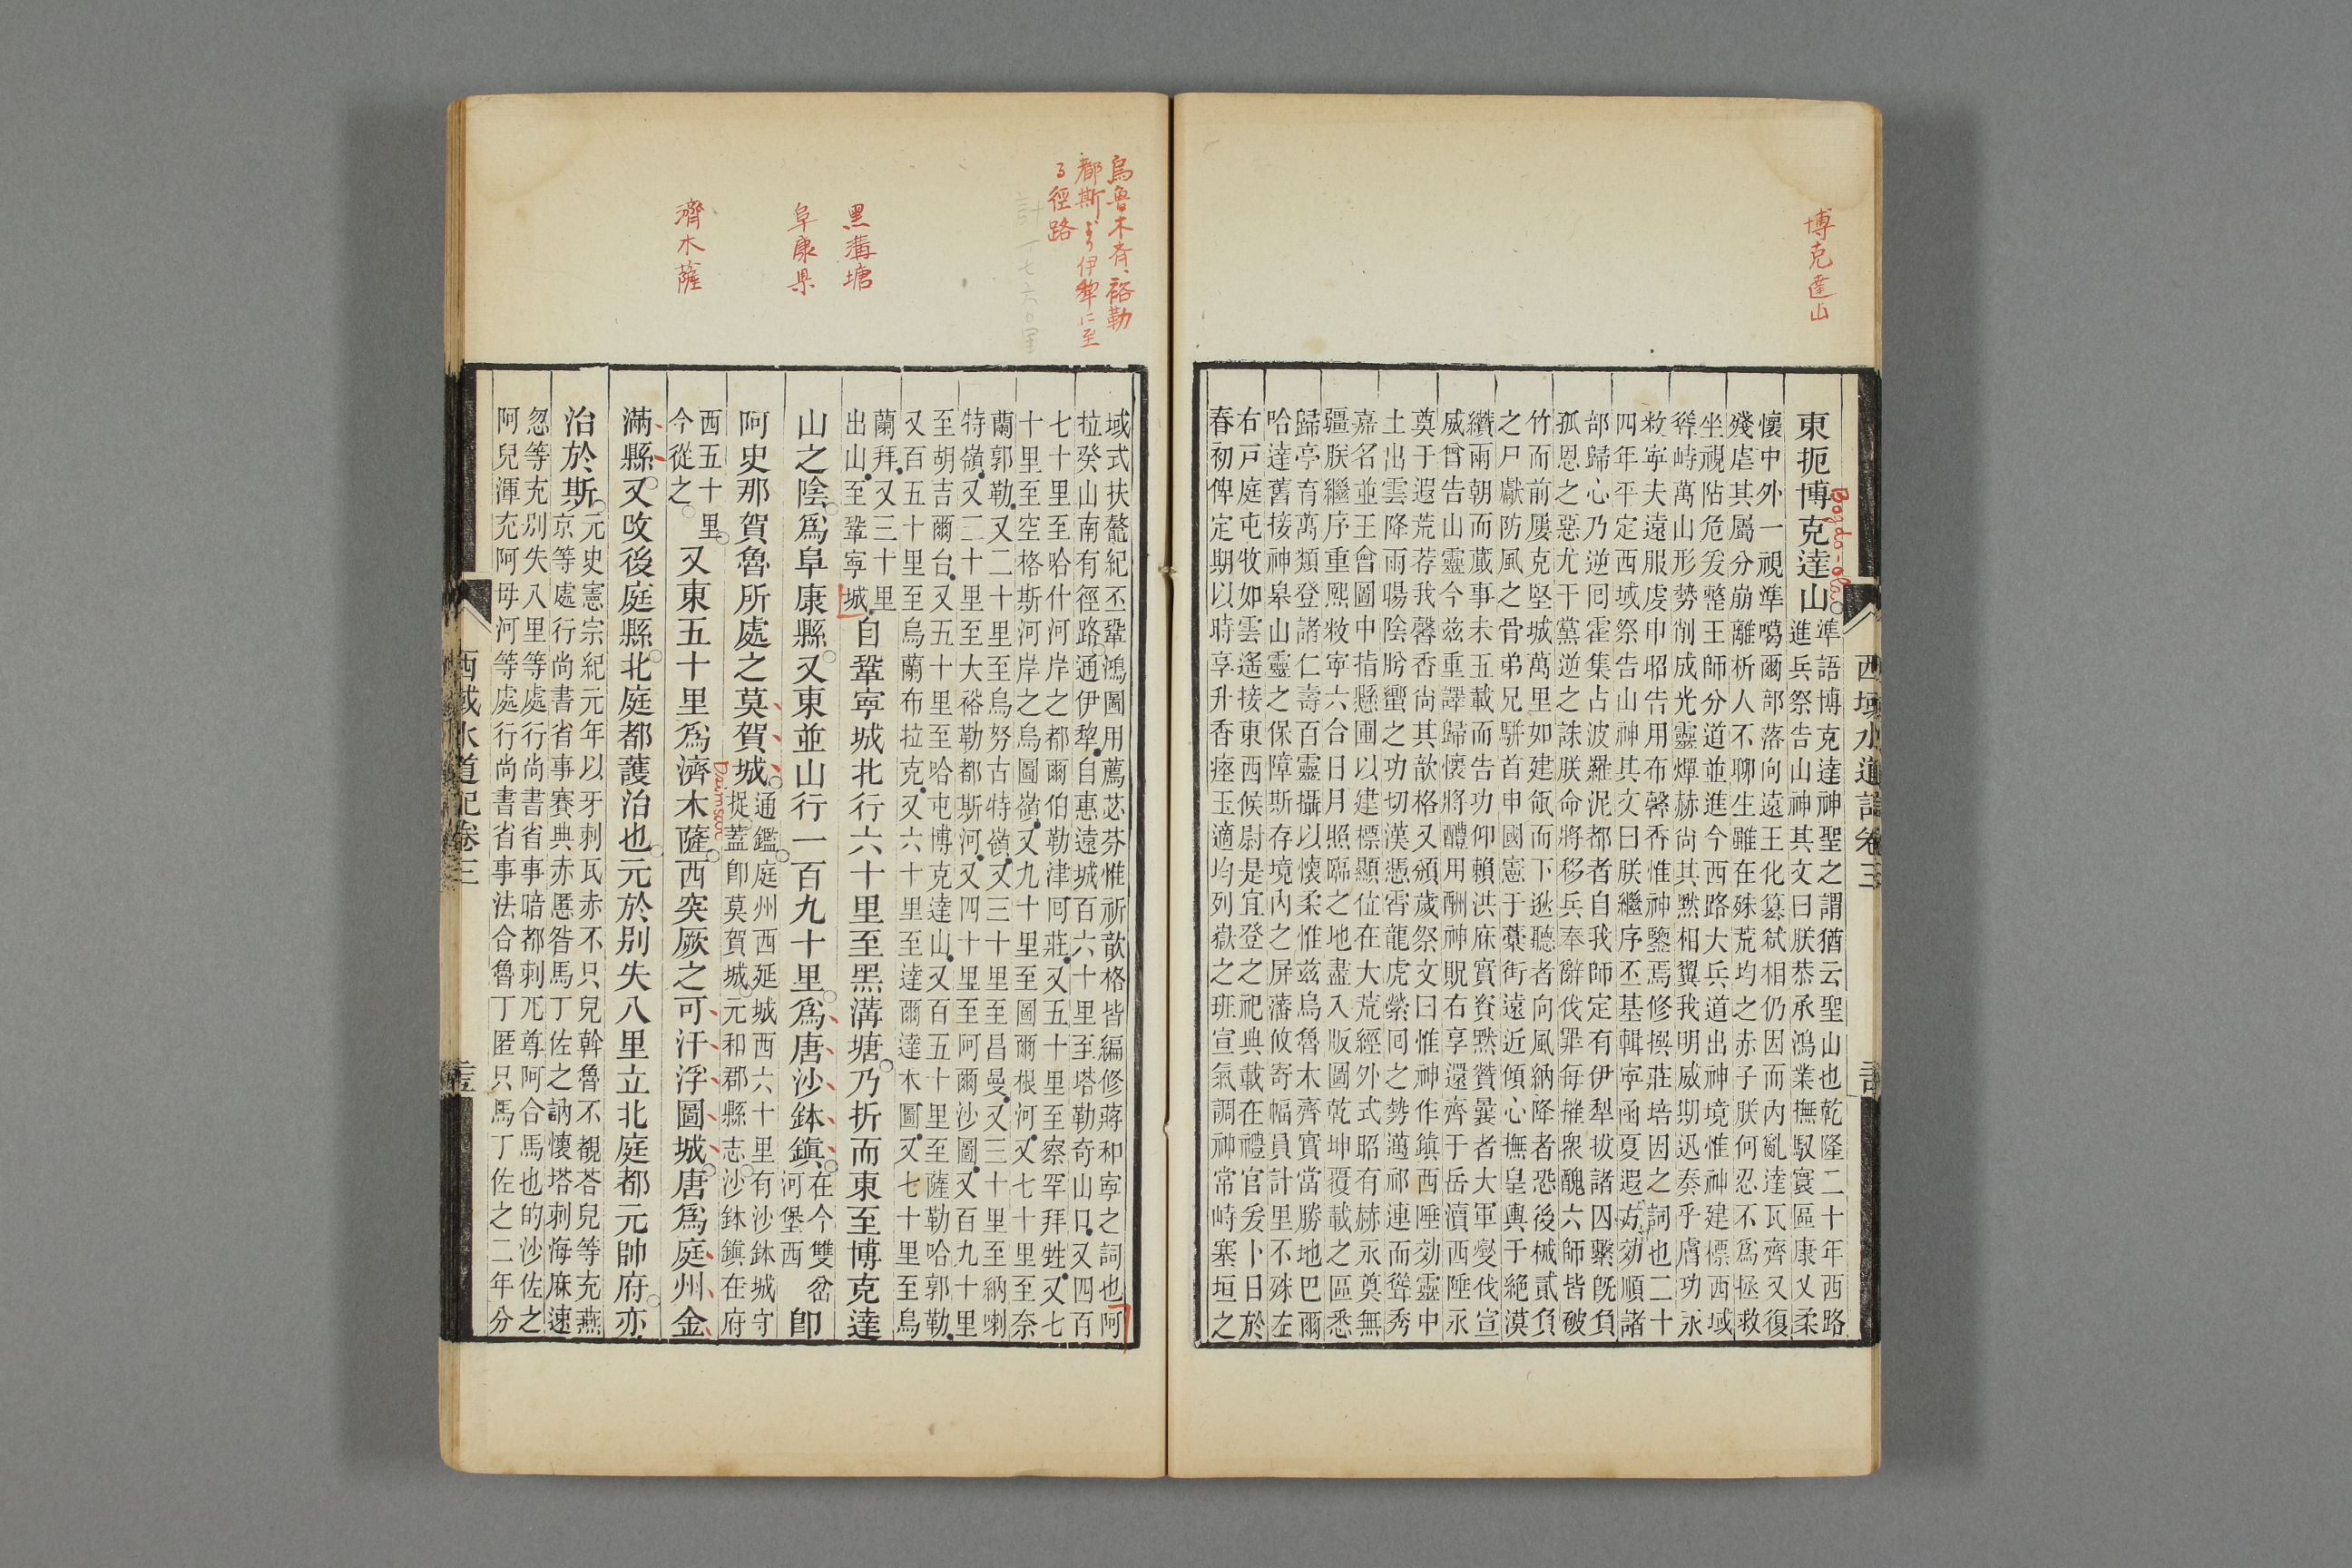 博克達山
Bogdo-ola
西域水道記卷三
東扼博克達山
準語博克達神聖之謂猶云聖山也乾隆二十年西路
進兵祭告山神其文曰朕恭承鴻業撫馭寰區康乂柔
懷中外一視準噶爾部落向遠王化簒弒相仍因而內亂達瓦齊又復
殘虐其屬分崩離析人不聊生雖在殊荒均之赤子朕何忍不爲拯救
坐視阽危爰整王師分道並進今西路大兵道出神境惟神建標西域
聳峙萬山形勢削成光靈燀赫尚其黙相翼我明威期迅奏乎膚功永
敉寧夫遠服虔申昭告用布馨香惟神鑒焉修撰莊培因之詞也二十
四年平定西域祭告山神其文曰朕繼序丕基輯寧函夏遐方効順諸
部歸心乃逆囘霍集占波羅泥都者自我師定有伊犁拔諸囚繫旣負
孤恩之惡尤干黨逆之誅朕命將移兵奉辭伐罪每摧衆醜六師皆破
竹而前屢克堅城萬里如建瓴而下逖聽者向風納降者恐後械貳負
之尸獻防風之骨弟兄駢首申國憲于藁街遠近傾心撫皇輿于絶漠
纘兩朝而蕆事未五載而告功仰賴洪庥實資黙贊曩者大軍燮伐宣
威曾告山靈今茲重譯歸懷將醴用酬神貺右享還齊于岳瀆西陲永
奠于遐荒荐我馨香尚其歆格又頒歲祭文曰惟神作鎮西陲効靈中
土出雲降雨暘陰肹蠁之功切漢憑霄龍虎縈囘之勢邁祁連而聳秀
嘉名並王會圖中指懸圃以建標顯位在大荒經外式昭有赫永奠無
疆朕繼序重熙敉寧六合日月照臨之地盡入版圖乾坤覆載之區悉
歸亭育萬類登諸仁壽百靈攝以懷柔惟茲烏魯木齊實當勝地巴爾
哈達舊接神臯山靈之保障斯存境內之屏藩攸寄幅員計里不殊左
右戸庭屯牧如雲遙接東西候尉是宜登之祀典載在禮官爰卜日於
春初俾定期以時享升香瘞玉適均列嶽之班宣氣調神常峙塞垣之
烏魯木斉、裕勒
都斯より伊犂に至
る徑路
計一七六〇里
黑溝塘
阜康県
濟木薩
域式扶鼇紀丕鞏鴻圖用薦苾芬惟祈歆格皆編修蔣和寧之詞也阿
拉癸山南有徑路通伊犂自惠遠城百六十里至塔勒奇山口又四百
七十里至哈什河岸之都爾伯勒津囘莊又五十里至察罕拜甡又七
十里至空格斯河岸之烏圖嶺又九十里至圖爾根河又七十里至奈
蘭郭勒又二十里至烏努古特嶺又三十里至昌曼又三十里至納喇
特嶺又二十里至大裕勒都斯河又四十里至阿爾沙圖又百九十里
至胡吉爾台又五十里至哈屯博克達山又百五十里至薩勒哈郭勒
又百五十里至烏蘭布拉克又六十里至達爾達木圖又七十里至烏
蘭拜又三十里
出山至鞏寧城
自鞏寧城北行六十里至黑溝塘乃折而東至博克達
山之陰爲阜康縣又東並山行一百九十里爲唐沙鉢鎭
在今雙岔
河堡西
卽
阿史那賀魯所處之莫賀城
通鑑庭州西延城西六十里有沙鉢城守
捉蓋卽莫賀城元和郡縣志沙鉢鎮在府
西五十里
今從之
又東五十里爲濟木薩西突厥之可汗浮圖城唐爲庭州金
滿縣又改後庭縣北庭都護治也元於別失八里立北庭都元帥府亦
治於斯
元史憲宗紀元年以牙刺瓦赤不只兒斡魯不覩荅兒等充燕
京等處行尚書省事賽典赤匿昝馬丁佐之訥懷塔刺海麻速
忽等充別失八里等處行尚書省事暗都刺兀尊阿合馬也的沙佐之
阿兒渾充阿毋河等處行尚書省事法合魯丁匿只馬丁佐之二年分
西域水道記卷三